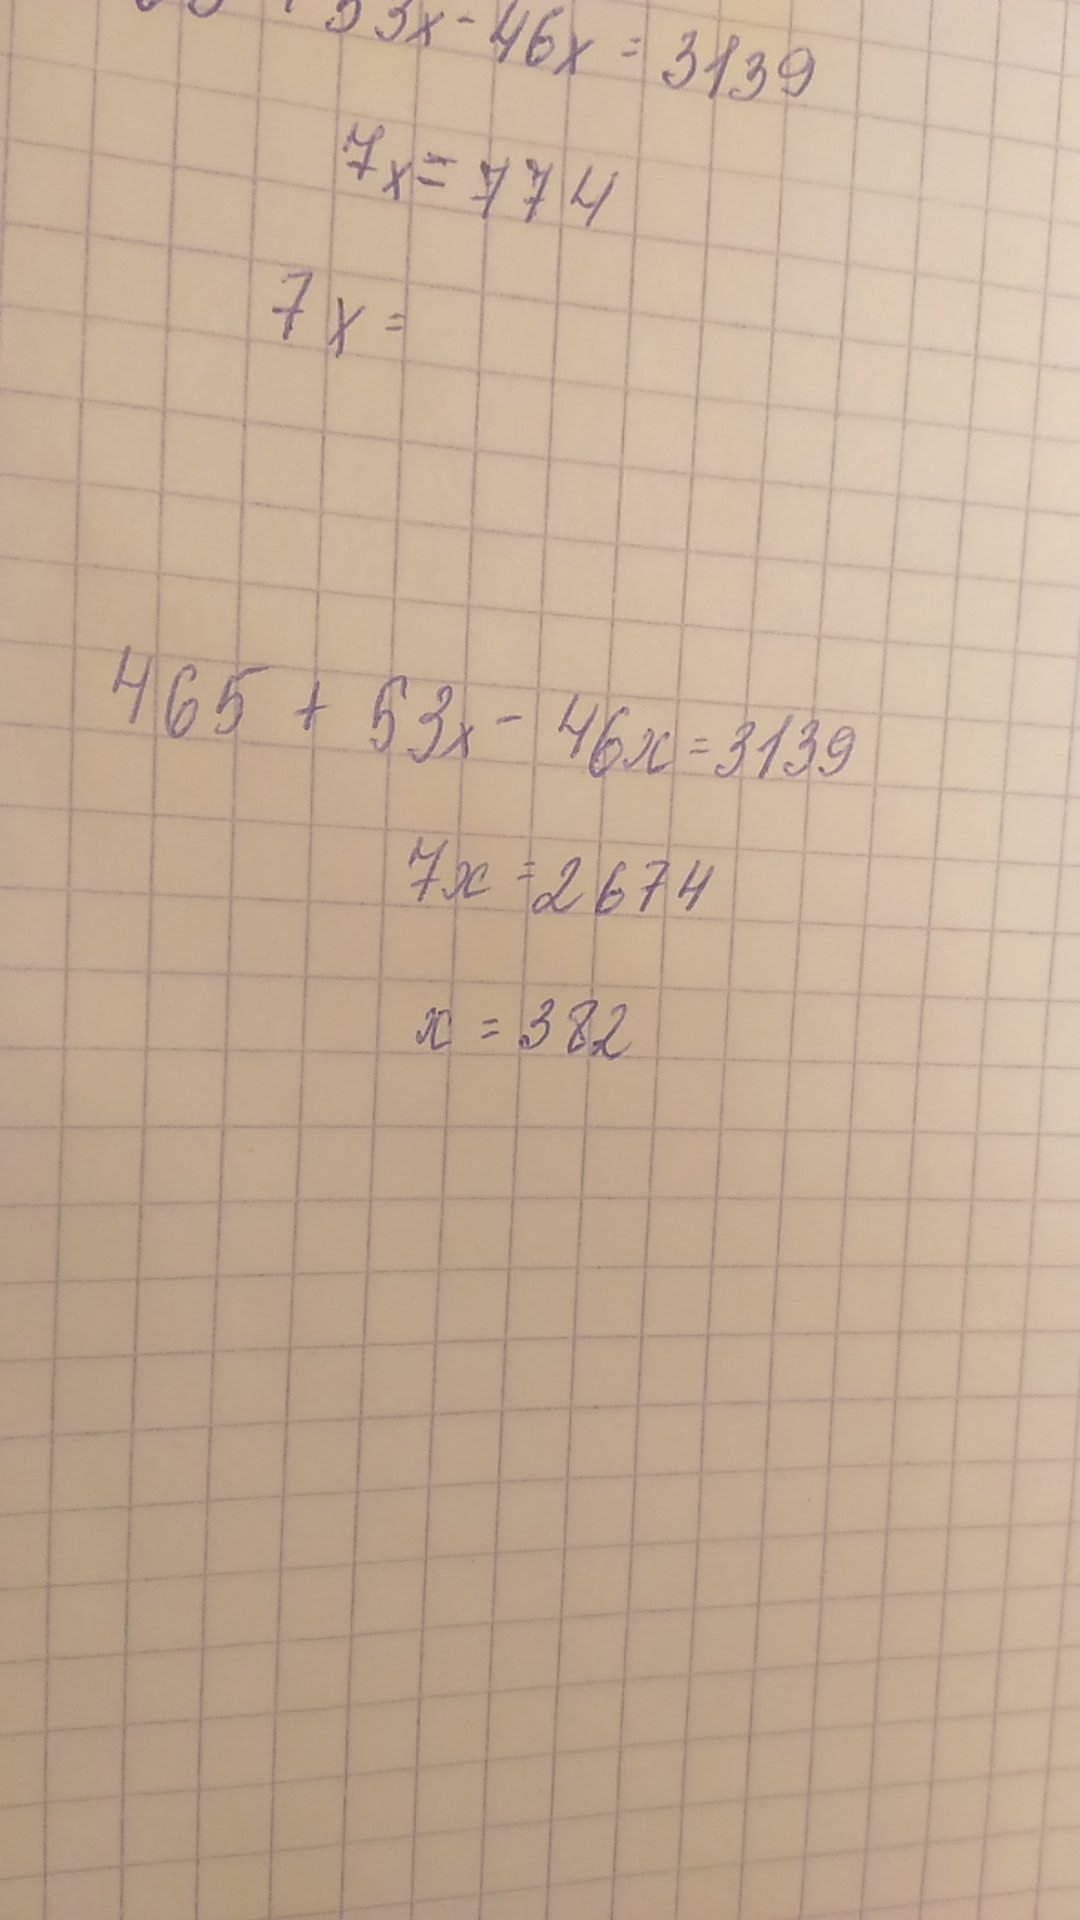 53x - 46x = 3139
7x = 774
7x =
465 + 53x - 46x = 3139
7x = 2674
x = 382